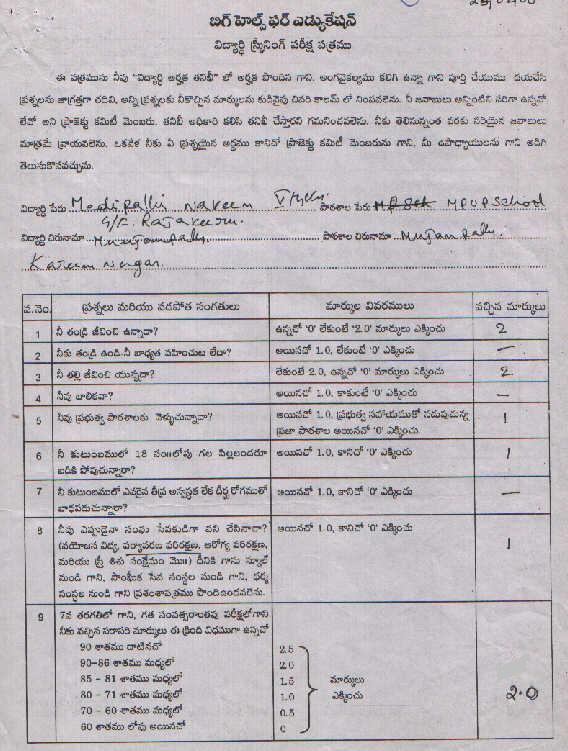 బిగ్ హెల్ప్ ఫర్ ఎడ్యుకేషన్
విద్యార్థి స్క్రీనింగ్ పరీక్ష పత్రము
ఈ పత్రమును నీవు "విద్యార్థి అర్హత తనిఖీ" లో అర్హత పొందిన గాని. అంగవైకల్యము కలిగి ఉన్నా గాని పూర్తి చేయుము దయచేసి
ప్రశ్నలను జాగ్రత్తగా చదివి, అన్ని ప్రశ్నలకు నీకొచ్చిన మార్కులను కుడివైపు చివరి కాలమ్ లో నింపవలెను. నీ జవాబులు అన్నింటిని సరిగా ఉన్నవో
లేవో అని ప్రాజెక్టు కమిటీ మెంబరు. తనిఖీ అధికారి కలిసి తనిఖీ చేస్తారని గమనించవలెను. నీకు తెలిసినంత వరకు సరియైన జవాబులు
మాత్రమే వ్రాయవలెను. ఒకవేళ నీకు ఏ ప్రశ్నయైన అర్థము కానిచో ప్రాజెక్టు కమిటీ మెంబరును గాని, మీ ఉపాధ్యాయులను గాని అడిగి
తెలుసుకొనవచ్చును.
విద్యార్థి పేరు Medipalli Naveen పాఠశాల పేరు MPUPSchool
విద్యార్థి చిరునామా పాఠశాల చిరునామా
Karim Nagar
వ.నెం. ప్రశ్నలు మరియు నడవోత సంగతులు మార్కుల వివరములు వచ్చిన మార్కులు
1 నీ తండ్రి జీవించి ఉన్నాడా? ఉన్నచో '0' లేకుంటే '2.0' మార్కులు ఎక్కించు 2
2 నీకు తండ్రి ఉండి-నీ బాధ్యత వహించుట లేదా? అయినచో 1.0, లేకుంటే '0' ఎక్కించు –
3 నీ తల్లి జీవించి యున్నదా? లేకుంటే 2.0, ఉన్నచో '0' మార్కులు ఎక్కించు 2
4 నీవు బాలికవా? అయినచో 1.0, కాకుంటే '0' ఎక్కించు –
5 నీవు ప్రభుత్వ పాఠశాలకు వెళ్ళుచున్నావా? అయినచో 1.0, ప్రభుత్వ సహాయముతో నడుపుచున్న
ప్రజా పాఠశాల అయినచో '0' ఎక్కించు. 1
6 నీ కుటుంబములో 18 సం॥లోపు గల పిల్లలందరూ అయినచో 1.0, కానిచో '0' ఎక్కించు 1
బడికి పోవుచున్నారా?
7 నీ కుటుంబములో ఎవరైన తీవ్ర అస్వస్థత లేక దీర్ఘ రోగముతో అయినచో 1.0, కానిచో '0' ఎక్కించు –
బాధపడుచున్నారా?
8 నీవు ఎప్పుడైనా సంఘ సేవకుడిగా పని చేసినావా? అయినచో 1.0, కానిచో '0' ఎక్కించు 1
(వయోజన విద్య, పర్యావరణ పరిరక్షణ, ఆరోగ్య పరిరక్షణ,
మరియు స్త్రీ శిశు సంక్షేమం మొ॥) దీనికి గాను స్కూల్
నుండి గాని, సాంఘిక సేవ సంస్థల నుండి గాని, ధర్మ
సంస్థల నుండి గాని ప్రశంశాపత్రము పొంది ఉండవలెను.
9 7వ తరగతిలో గాని, గత సంవత్సరాంతపు పరీక్షలో గాని
నీకు వచ్చిన సరాసరి మార్కులు ఈ క్రింది విధముగా ఉన్నచో
90 శాతము దాటినచో 2.5
90-86 శాతము మధ్యలో 2.0
85 - 81 శాతము మధ్యలో 1.5 మార్కులు
80 - 71 శాతము మధ్యలో 1.0 ఎక్కించు 2.0
70 - 60 శాతము మధ్యలో 0.5
60 శాతము లోపు అయినచో 0